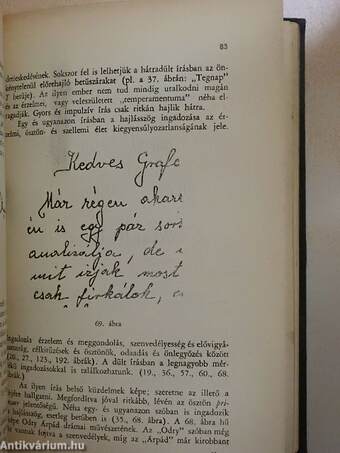 83
lemeskedésének. Sokszor fel is lelhetjük a hátradűlt írásban az ön-
kénytelenül előrehajló betűszárakat (pl. a 37. ábrán: „Tegnap"
T betűje). Az ilyen ember nem tud mindig uralkodni magán
és az érzelmei, vagy veleszületett „temperamentuma" néha el-
ragadják. Gyors és impulzív írás csak ritkán hajlik hátra.
Egy és ugyanazon írásban a hajlásszög ingadozása az ér-
zelmi, ösztön- és szellemi élet kiegyensúlyozatlanságának jele.
Kedves Grafo
Már régen akar
én is egy pár sor
analizálja, de
mit írjak most
csak firkálok, e
69. ábra
Ingadozás érzelem és meggondolás, szenvedélyesség és elővigyá-
zatosság, célkitűzések és ösztönök, odaadás és önlegyőzés között
(20., 27., 123., 192. ábrák). A dűlt írásban a legnagyobb mérvű
ingadozásokkal is találkozhatunk. (19., 36., 57., 60., 68.
Az ilyen írás belső küzdelmek képe; szeretne az illető a
hallgatni. Megfordítva jóval ritkább, lévén az ösztön pri-
jelenségű. Néha egy- és ugyanazon szóban is ingadozik
a hajlásszög, esetleg betűben is (35., 68. ábra). A 68. ábra hű
képe Ódry Árpád drámai művészetének. Az „Ódry" szóban még
vannak fojtva a szenvedélyek, míg az „Árpád" már kirobbant
antikvárium.hu